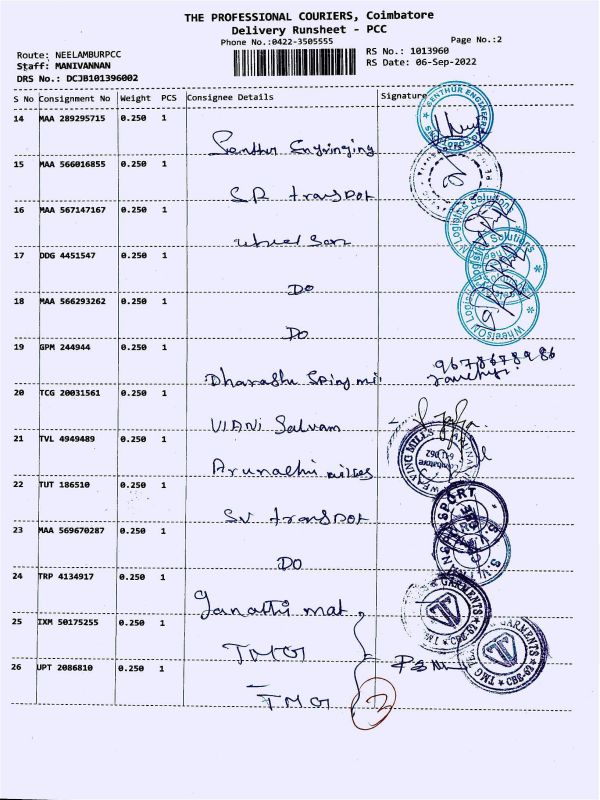 THE PROFESSIONAL COURIERS, Coimbatore
Delivery Runsheet - PCC
Phone No.:0422-3505555
Page No.:2
Route: NEELAMBURPCC
RS No.: 1013960
Staff: MANIVANNAN
RS Date: 06-Sep-2022
DRS No.: DCJB101396002
S No Consignment No Weight PCS Consignee Details Signature
14 MAA 289295715 0.250 1
Senthur Engringing
15 MAA 566016855 0.250 1
SR transpot
16 MAA 567147167 0.250 1
wheel son
17 DDG 4451547 0.250 1
DO
18 MAA 566293262 0.250 1
DO
19 GPM 244944 0.250 1
Spinig mil
20 TCG 20031561 0.250 1
VIANI Selvam
21 TVL 4949489 0.250 1
Arunathi
22 TUT 186510 0.250 1
SV transpot
23 MAA 569670287 0.250 1
DO
24 TRP 4134917 0.250 1
Ganathi mat
25 IXM 50175255 0.250 1
TMG
26 UPT 2086810 0.250 1
TMG
3
SENTHUR ENGINEER
Wheelson Logistics Solutions
WEAVING MILLS
641 062
S.V. TRANSPORT
TMG GARMENTS
CBE